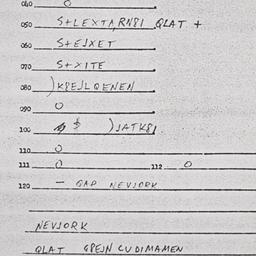 040 O
050 S+LEXTA,RN8I QLAT +
060 S+EJXET
070 S+XITE
080 )K8EJLQENEN
090 O
100 $ )JATK8,
110 O
111 O 112 O
120 — GAP NEVJORK
NEVJORK
QLAT G8EJN CUDIMAMEN